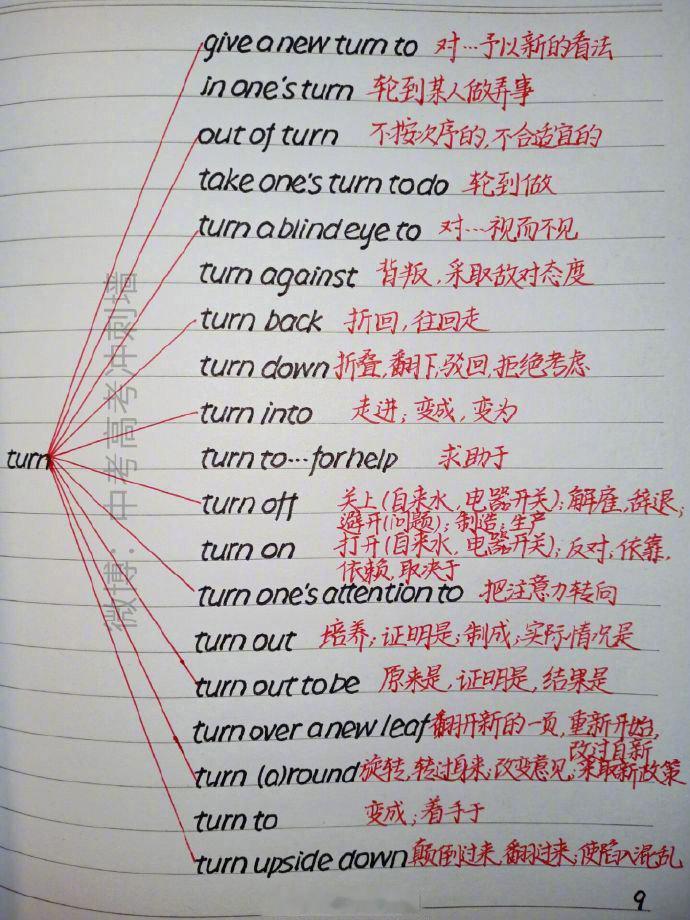 give a new turn to 对…予以新的看法
in one's turn 轮到某人做弄事
out of turn 不按次序的,不合适宜的
take one's turn to do 轮到做
turn a blind eye to 对…视而不见
turn against 背叛,采取敌对态度
turn back 折回,往回走
turn down 折叠,翻下,驳回,拒绝考虑
turn into 走进;变成,变为
turn
turn to…for help 求助于
turn off 关上(自来水,电器开关);解雇,辞退;
避开(问题);制造;生产
turn on 打开(自来水,电器开关);反对;依靠,
依赖,取决于
turn one's attention to 把注意力转向
turn out 培养;证明是;制成;实际情况是
turn out to be 原来是,证明是,结果是
turn over a new leaf 翻开新的一页,重新开始,
改过自新
turn (a)round 旋转,转过身来;改变意见;采取新政策
turn to 变成;着手于
turn upside down 颠倒过来,翻过来;使陷入混乱
9
微博:中考高考冲刺墙